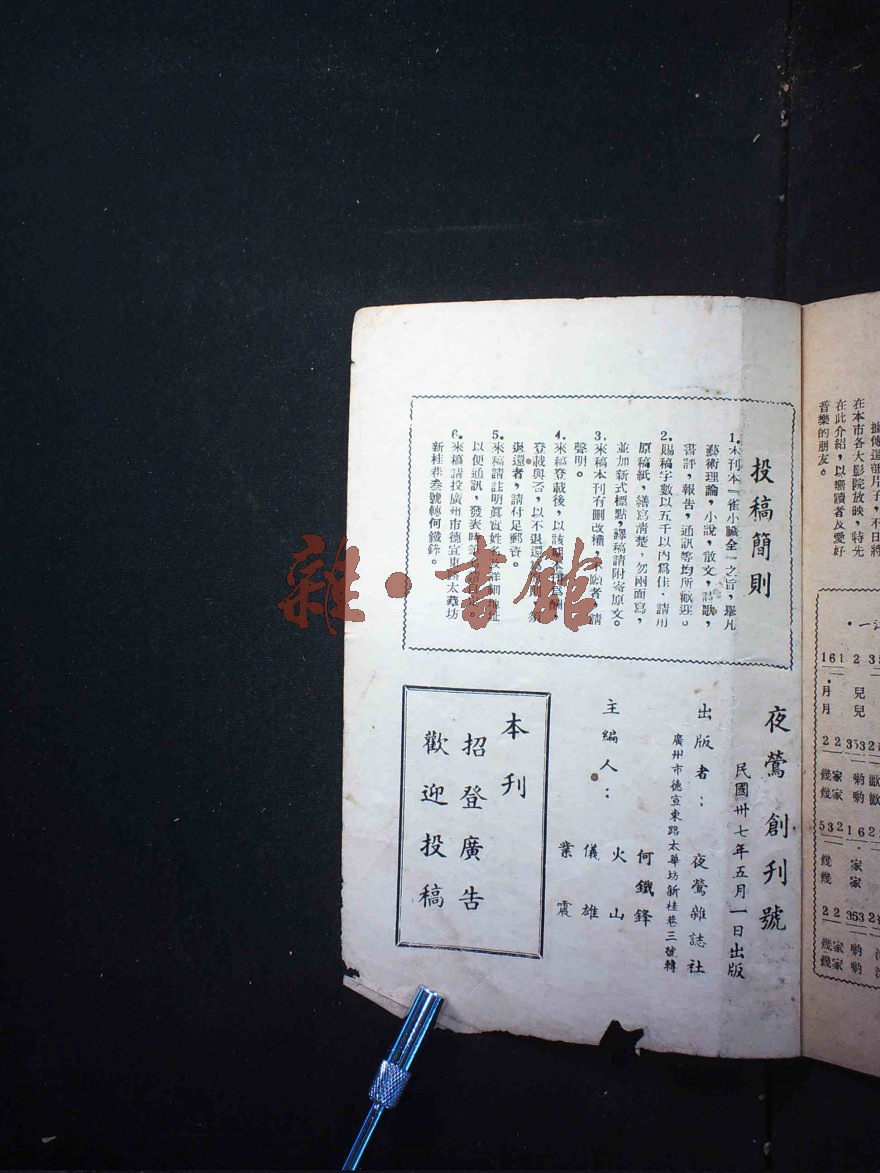 投稿簡則
1.本刊本『雀小臟全』之旨，舉凡
藝術理論，小說，散文，詩歌，
書評，報告，通訊等均所歡迎。
2.賜稿字數以五千以內爲佳，請用
原稿紙，繕寫清楚，勿兩面寫，
並加新式標點，譯稿請附寄原文。
3.來稿本刊有刪改權，不願者，請
聲明。
4.來稿登載後，以該期本刊爲酬，
登載與否，以不退還
退還者，請付足郵資。
5.來稿請註明眞實姓名及詳細地址
以便通訊，發表時
6.來稿請投廣州市德宣東路太華坊
新桂巷叁號轉何鐵鋒。
夜鶯創刊號
民國卅七年五月一日出版
出版者：夜鶯雜誌社
廣州市德宣東路太華坊新桂巷三號轉
主編人：
何鐵鋒
火山
儀雄
業震
本刊
招登廣告
歡迎投稿
據傳這部片子，不日將
在本市各大影院放映，特先
在此介紹，以饗讀者及愛好
音樂的朋友。
雜·書館